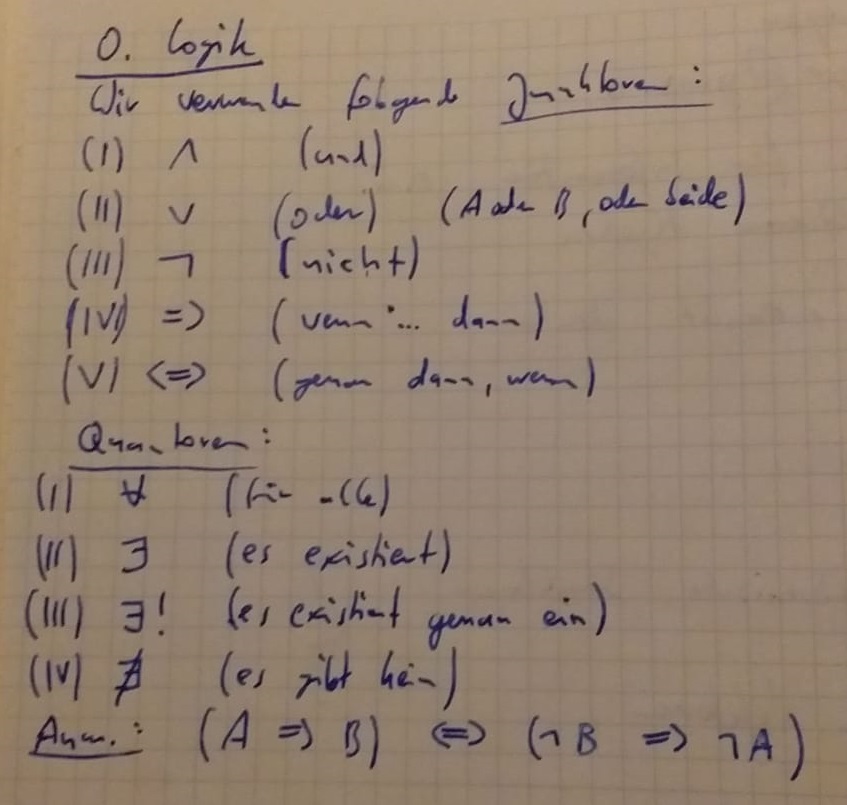 0. Logik
Wir verwenden folgende Junktoren:
(I) ∧ (und)
(II) ∨ (oder) (A oder B, oder beide)
(III) ¬ (nicht)
(IV) => (wenn ... dann)
(V) <=> (genau dann, wenn)
Quantoren:
(I) ∀ (für alle)
(II) ∃ (es existiert)
(III) ∃! (es existiert genau ein)
(IV) ∄ (es gibt kein)
Anm.: (A => B) <=> (¬B => ¬A)